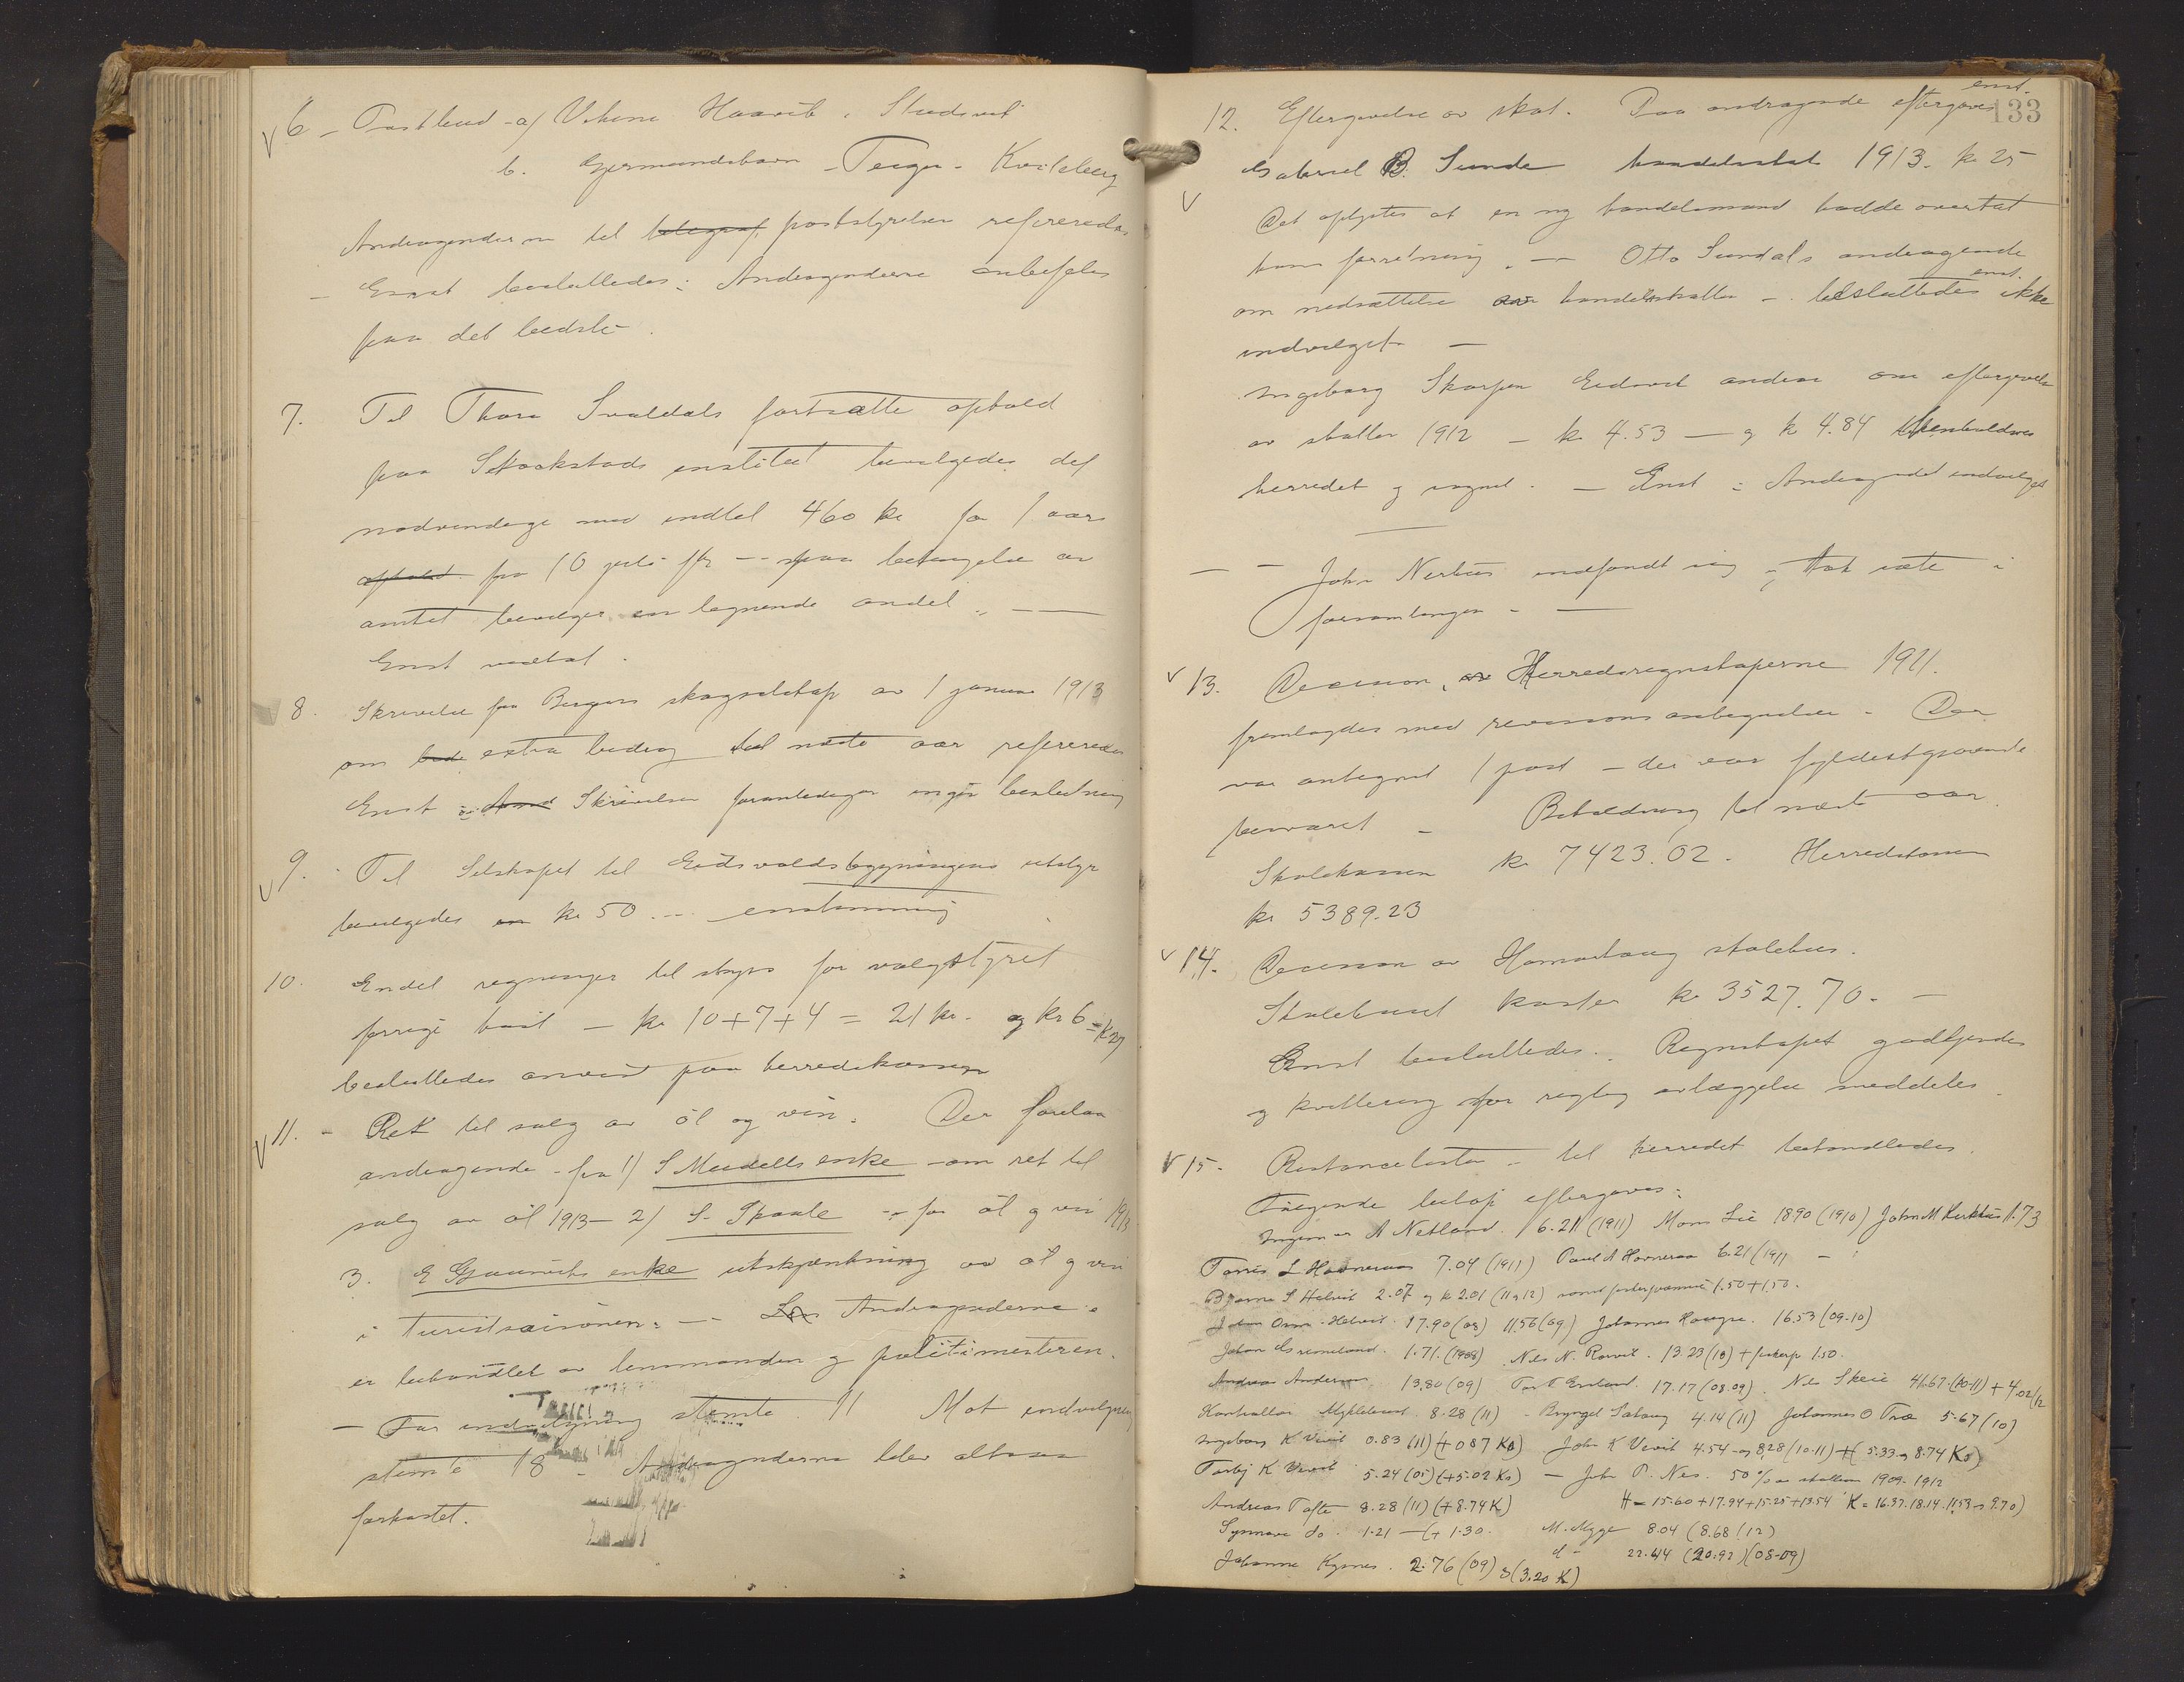 6 - Postbud - a/ Vikene Haavik - Studsvik
b. Gjermundshavn - Teige - Kviteberg
Andragenderne til telegraf poststyrelsen refereredes
- Enst besluttedes: Andragenderne anbefales
paa det bedste.
7. Til Thora Svaldals fortsatte ophold
paa institut bevilgedes det
nødvendige med indtil 460 kr for 1 aars
ophold fra 10 juli - paa betingelse av
amtet bevilger en lignende andel. -
Enst vedtat.
8. Skrivelse fra Bergens skogselskap av 1 januar 1913
om extra bidrag til næste aar refereredes
Enst: Skrivelsen foranlediger ingen beslutning
9. Til Selskapet til Eidsvoldsbygningens utstyr
bevilgedes kr 50 - enstemmig
10. Endel regninger til skyss for valgstyret
forrige høst - kr 10+7+4 = 21 kr. og kr 6 = kr 27
besluttedes anvist paa herredskassen
11. - Ret til salg av øl og vin. Der forelaa
andragende fra 1/ S Meidells enke - om ret til
salg av øl 1913 - 2/ S. - for øl og vin 1913
3. E Gjuuviks enke utskjænkning av øl og vin
i turistsaisonen. - Andragenderne
er behandlet av lensmanden og politimesteren.
- For indvilgning stemte 11 Mot indvilgning
stemte 18 - Andragenderne blev altsaa
forkastet.
133
12. Eftergivelse av skat. Paa andragende eftergaves enst.
Gabriel B. Sunde handelsskat 1913. kr 25
Det oplystes at en ny handelsmand hadde overtat
hans forretning. - Otto Sundals andragende
om nedsættelse av handelsskatten - besluttedes enst. ikke
indvilget -
Ingeborg Skorpen Eidsvik andrar om eftergivelse
av skatter 1912 - kr 4.53 - og kr 4.84 henholdsvis
herredet og sognet. - Enst: Andragendet indvilges
- - John Nerhus indfandt sig og tok sæte i
forsamlingen. -
13. Decision av Herredsregnskaperne 1911.
fremlagdes med revisionsantegnelser. Der
var antegnet 1 post - der var fyldestgjørende
besvaret - Beholdning til næste aar
Skolekassen kr 7423.02. Herredskassen
kr 5389.23
14. Decision av Homarhaug skolehus.
Skolehuset koster kr 3527.70. -
Enst besluttedes: Regnskapet godkjendes
og kvittering for rigtig avlæggelse meddeles.
15. Restancelisten - til herredet behandledes.
Følgende beløp eftergaves:
A Netland. 6.21 (1911) Mons Lie 1890 (1910) John M 1.73
Torris L 7.04 (1911) Paul A 6.21 (1911 -
Bjarne S Helvik 2.07 og kr 2.01 (11 og 12) 1.50+1.50.
Helvik. 17.90 (08) 11.56 (09) Johannes 16.53 (09-10)
Johan 1.71. (1908) Nils N. 13.23 (10) + 1.50.
Andreas Andersen 13.80 (09) 17.17 (08.09). Nils Skeie 41.67. (10-11) + 4.02/12
Myklebust 8.28 (11) - Brynjel 4.14 (11) Johannes O 5.67 (10)
Ingeborg K Vevik 0.83 (11) (+ 087 K) John K Vevik 4.54 og 8.28 (10-11) + (5.33 og 8.74 K)
Torbj K Vevik 5.24 (05) (+5.02 K) - John P. Nes. 50% av skatten 1909-1912
Andreas Tofte 8.28 (11) (+8.74 K) H = 15.60 + 17.94 + 15.25 + 13.54 K = 16.37. 18.14. 11.53 og 9.70)
Synnøve do. 1.21 - (+ 1.30. M. Mygge 8.04 (8.68 (12)
d- 22.44 (20.92) (08-09)
Johanne Kysnes. 2.76 (09) (3.20 K)